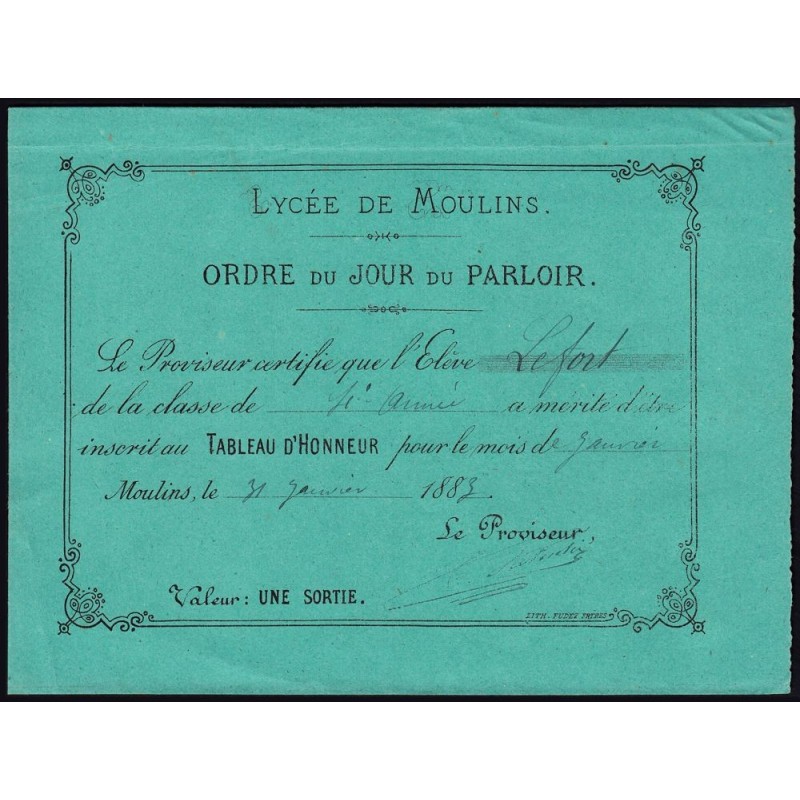 LYCÉE DE MOULINS.
ORDRE DU JOUR DU PARLOIR.
Le Proviseur certifie que l'Elève Lefort
de la classe de 4e année a mérité d'être
inscrit au TABLEAU D'HONNEUR pour le mois de Janvier
Moulins, le 31 Janvier 1883.
Le Proviseur,
Valeur: UNE SORTIE.
LITH. FUDEZ FRÈRES